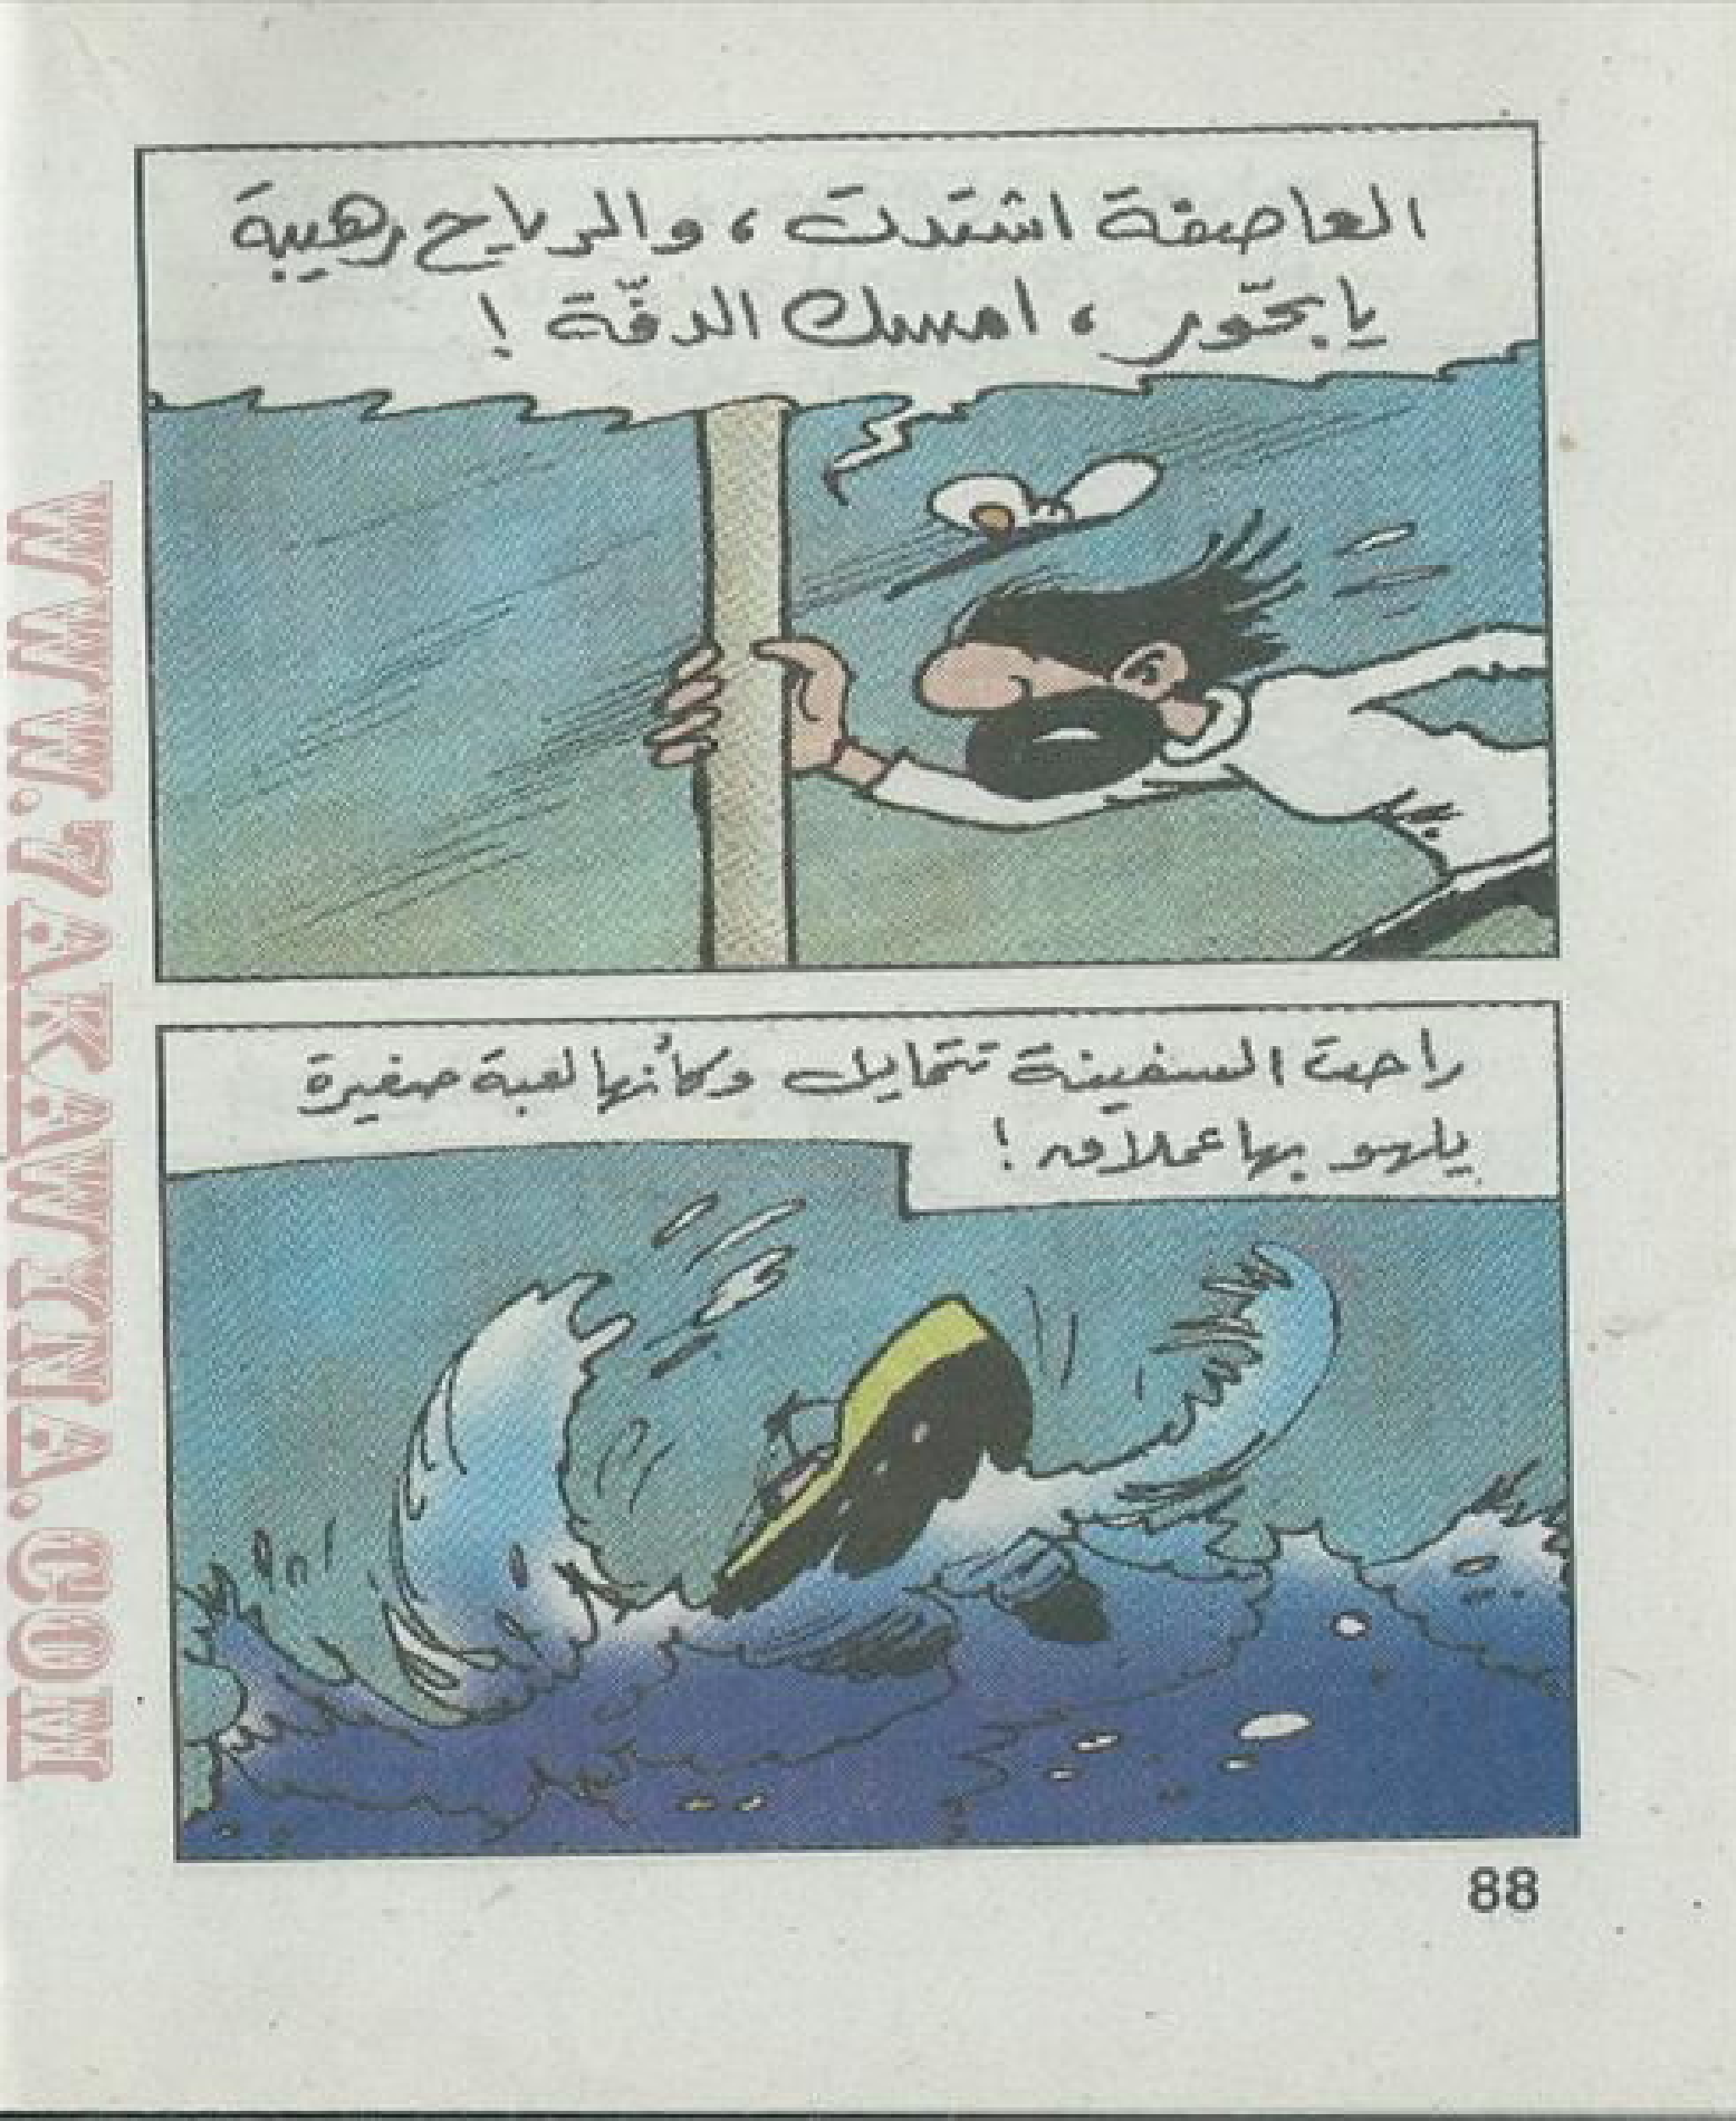 العاصفة اشتدت ، والرياح رهيبة
يا بحّور ، امسك الدفّة !
راحت السفينة تتمايل وكأنها لعبة صغيرة
يلهو بها عملاق !
88
WWW.7AKAWINA.COM